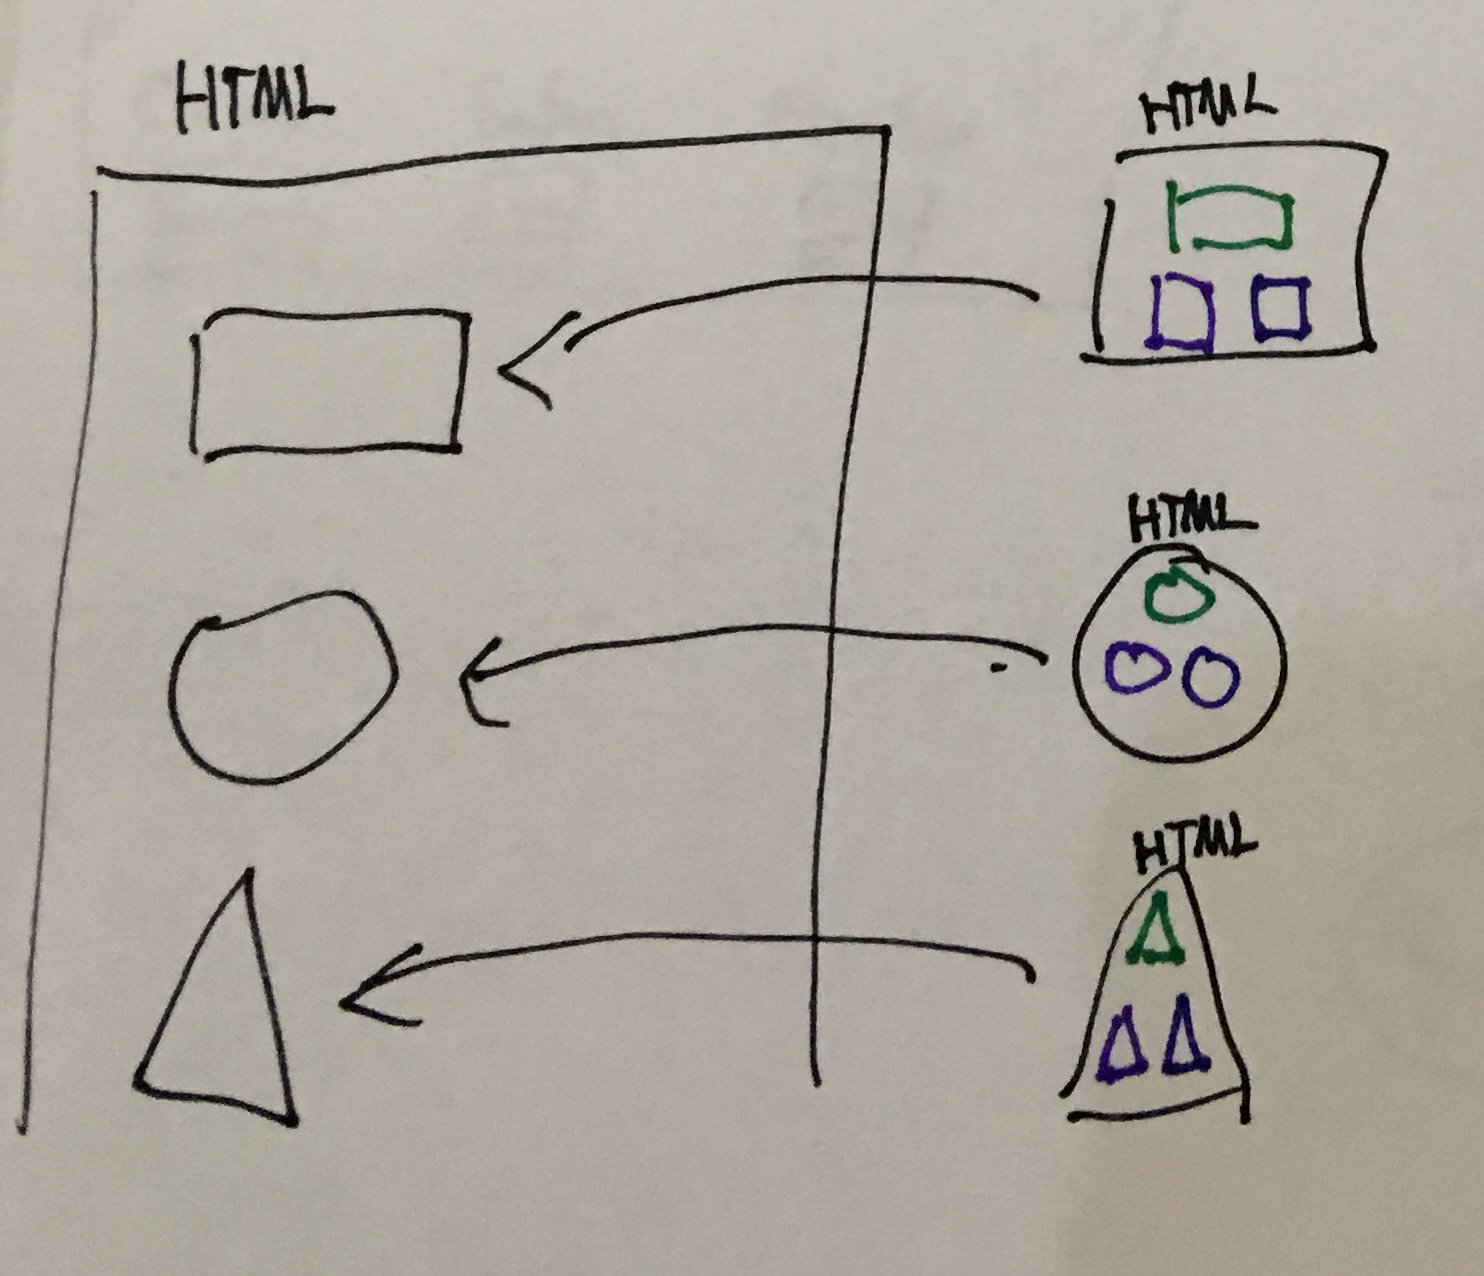 HTML
HTML
HTML
HTML